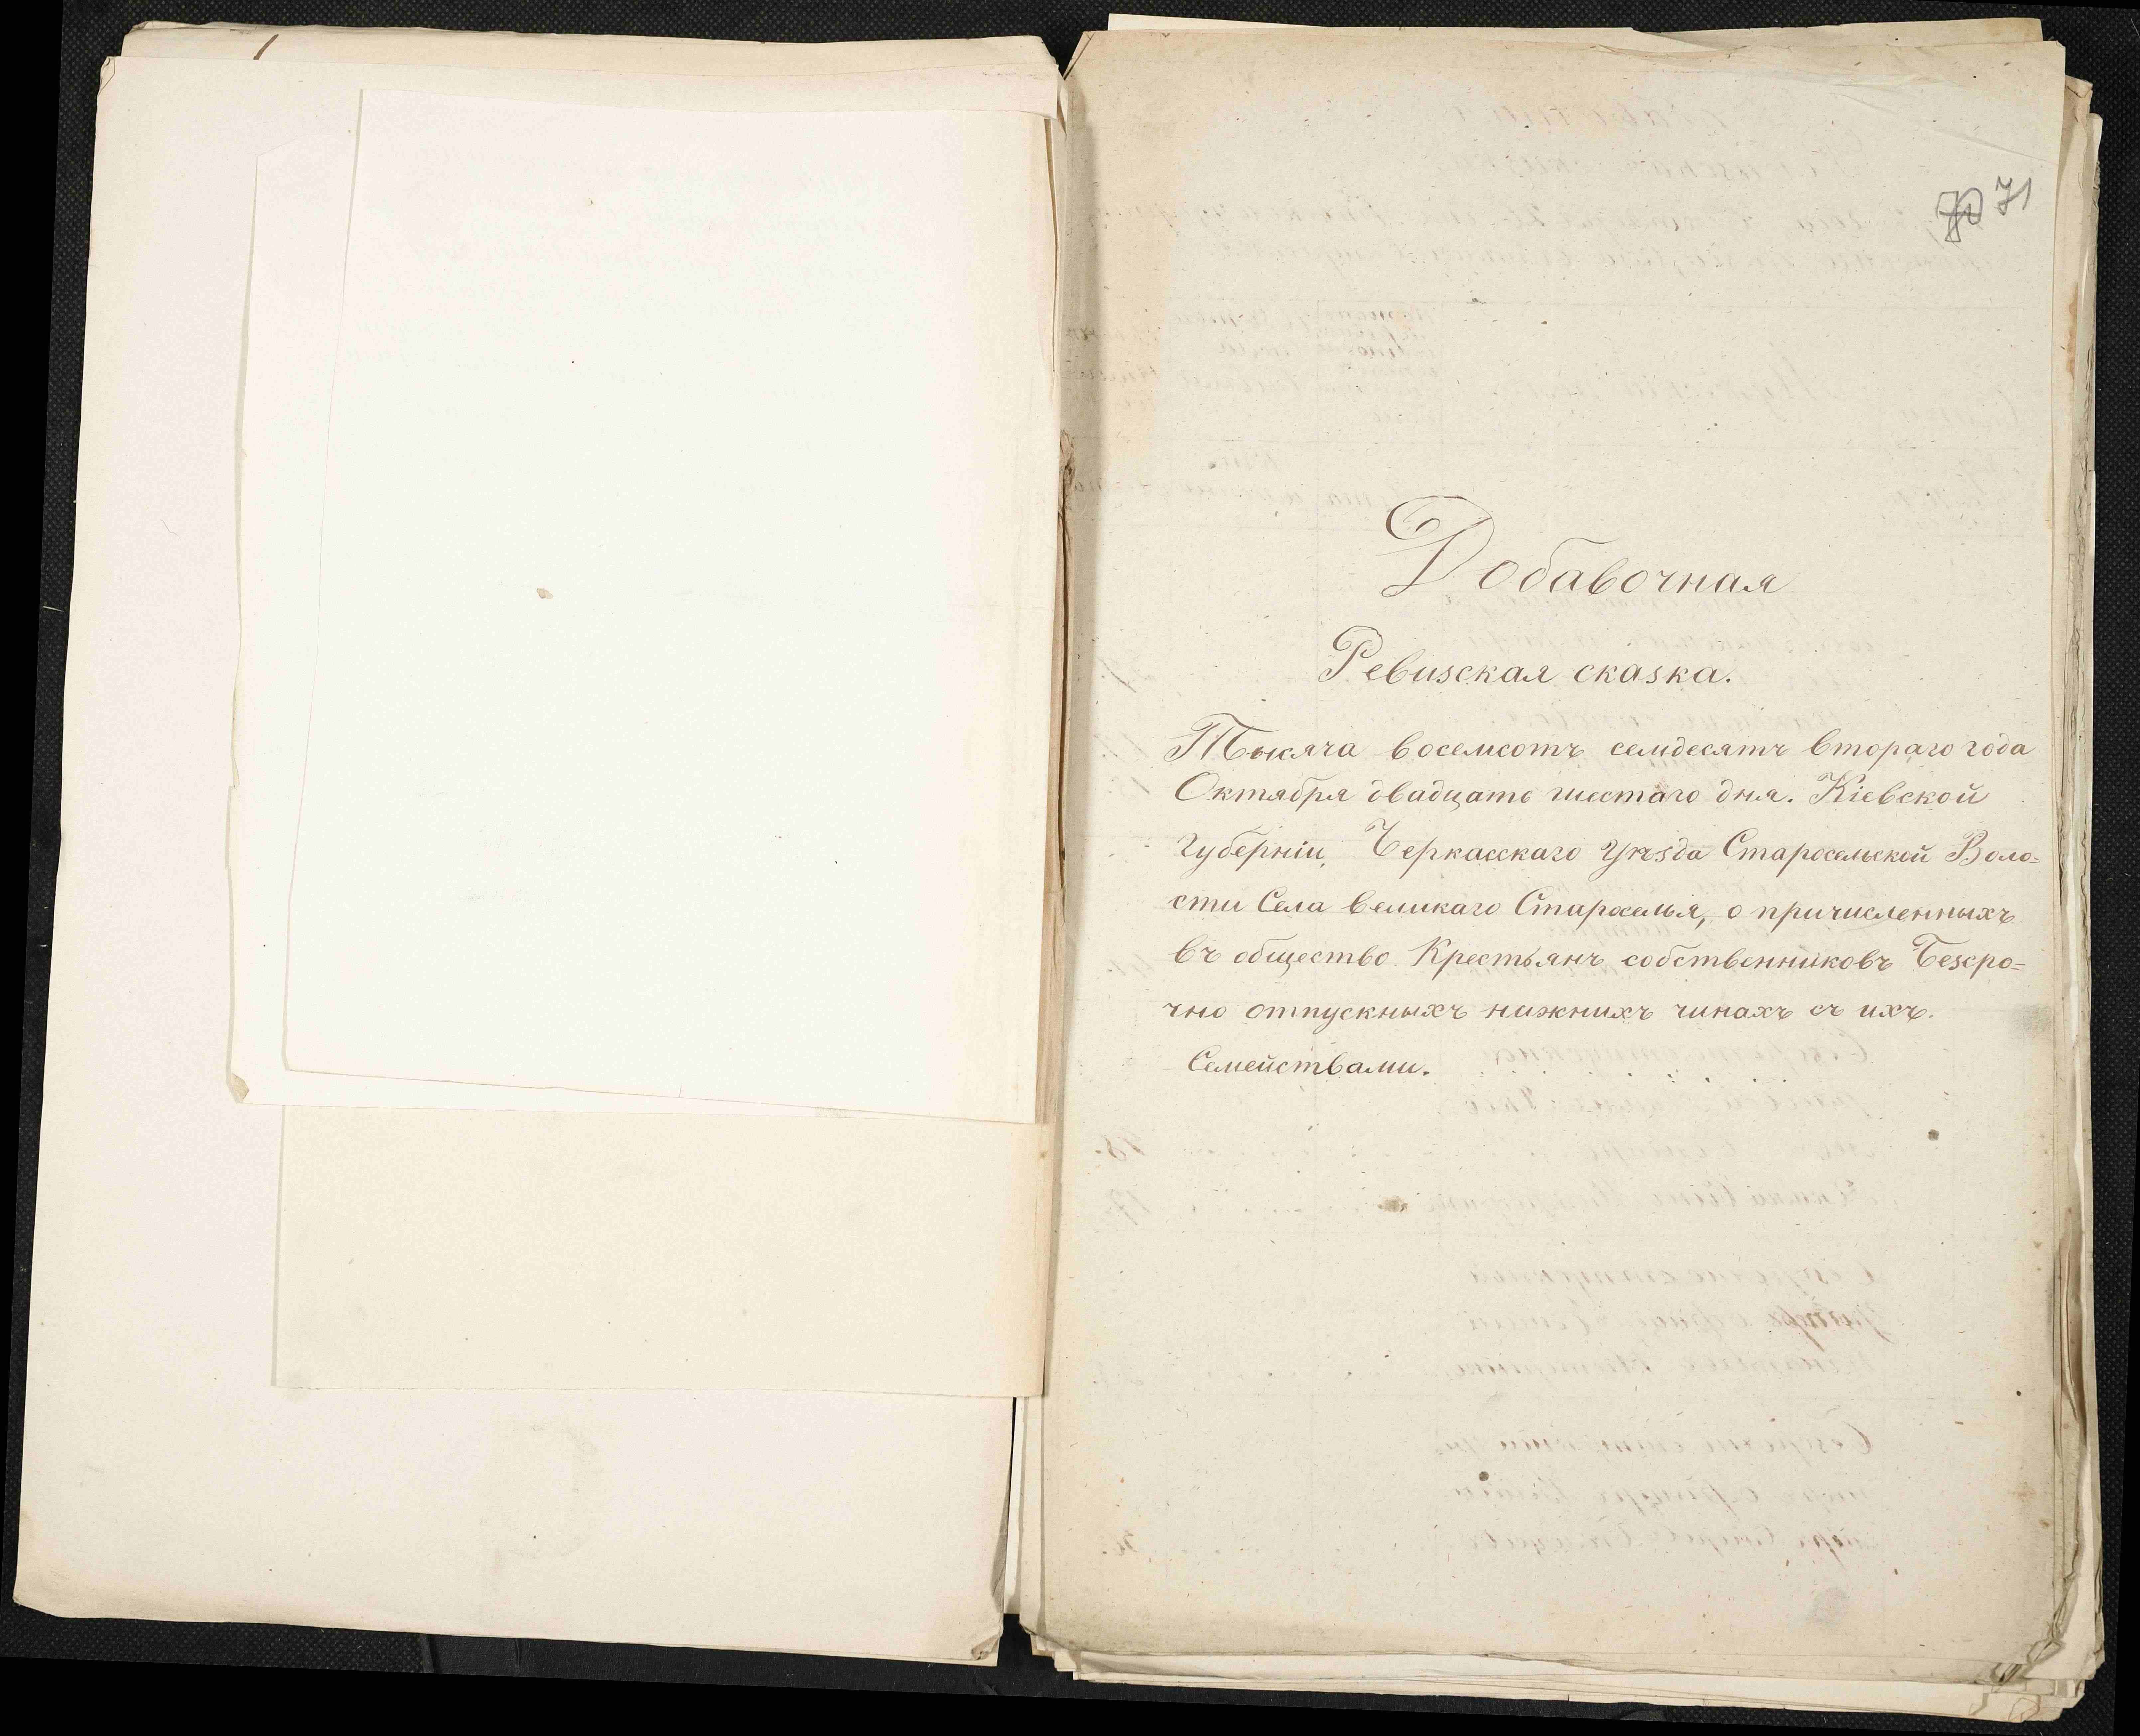 70 71
Добавочная
Ревизская сказка.
Тысяча восемсотъ семдесятъ втораго года
Октября двадцать шестаго дня. Кіевской
губерніи, Черкасскаго Уѣзда Старосельской Воло=
сти Села великаго Староселья, о причисленныхъ
въ общество Крестьянъ собственниковъ Безсро=
чно отпускныхъ нижнихъ чинахъ съ ихъ.
Семействами.